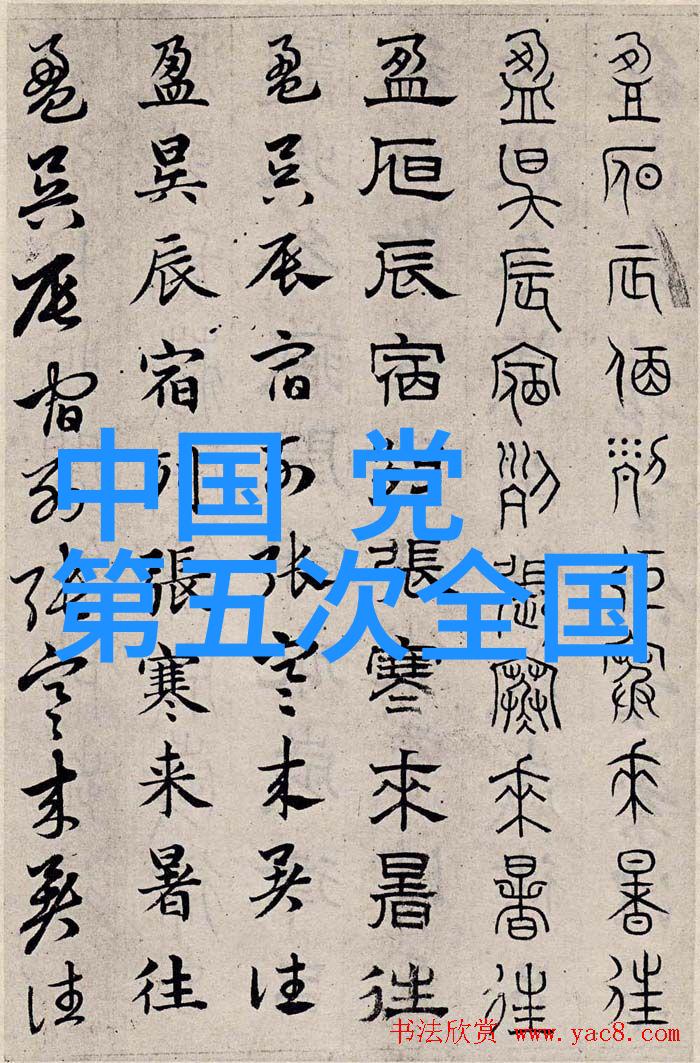 中国 党
第五次全国
盈昃辰宿列張寒來暑往
盈昃辰宿列張寒來暑往
盈昃辰宿列張寒來暑往
盈昃辰宿列张寒来暑往
盈昃辰宿列張寒来暑往
盈昃辰宿列张寒来暑往
书法欣赏 www.yac8.com